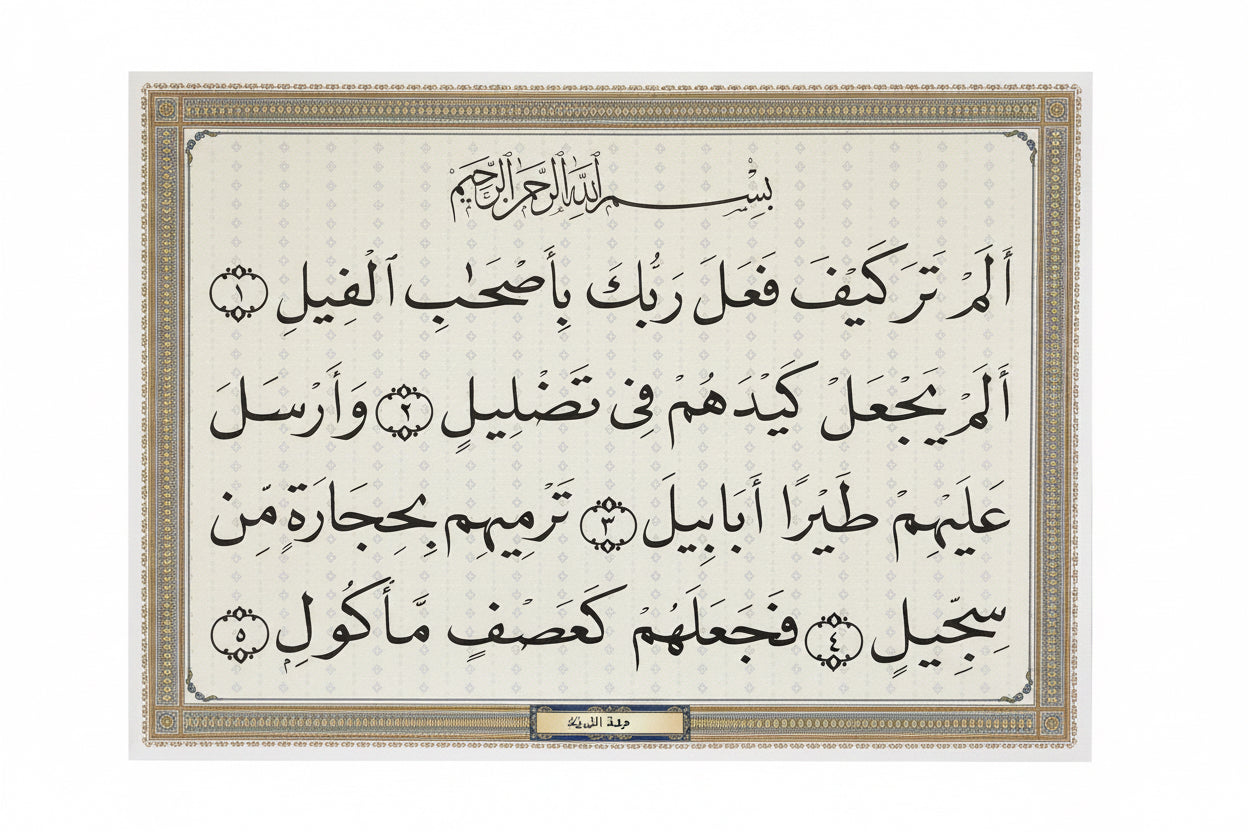 بِسْمِ ٱللَّهِ ٱلرَّحْمَٰنِ ٱلرَّحِيمِ
أَلَمْ تَرَ كَيْفَ فَعَلَ رَبُّكَ بِأَصْحَٰبِ ٱلْفِيلِ ١
أَلَمْ يَجْعَلْ كَيْدَهُمْ فِى تَضْلِيلٍ ٢ وَأَرْسَلَ
عَلَيْهِمْ طَيْرًا أَبَابِيلَ ٣ تَرْمِيهِم بِحِجَارَةٍ مِّن
سِجِّيلٍ ٤ فَجَعَلَهُمْ كَعَصْفٍ مَّأْكُولٍ ٥